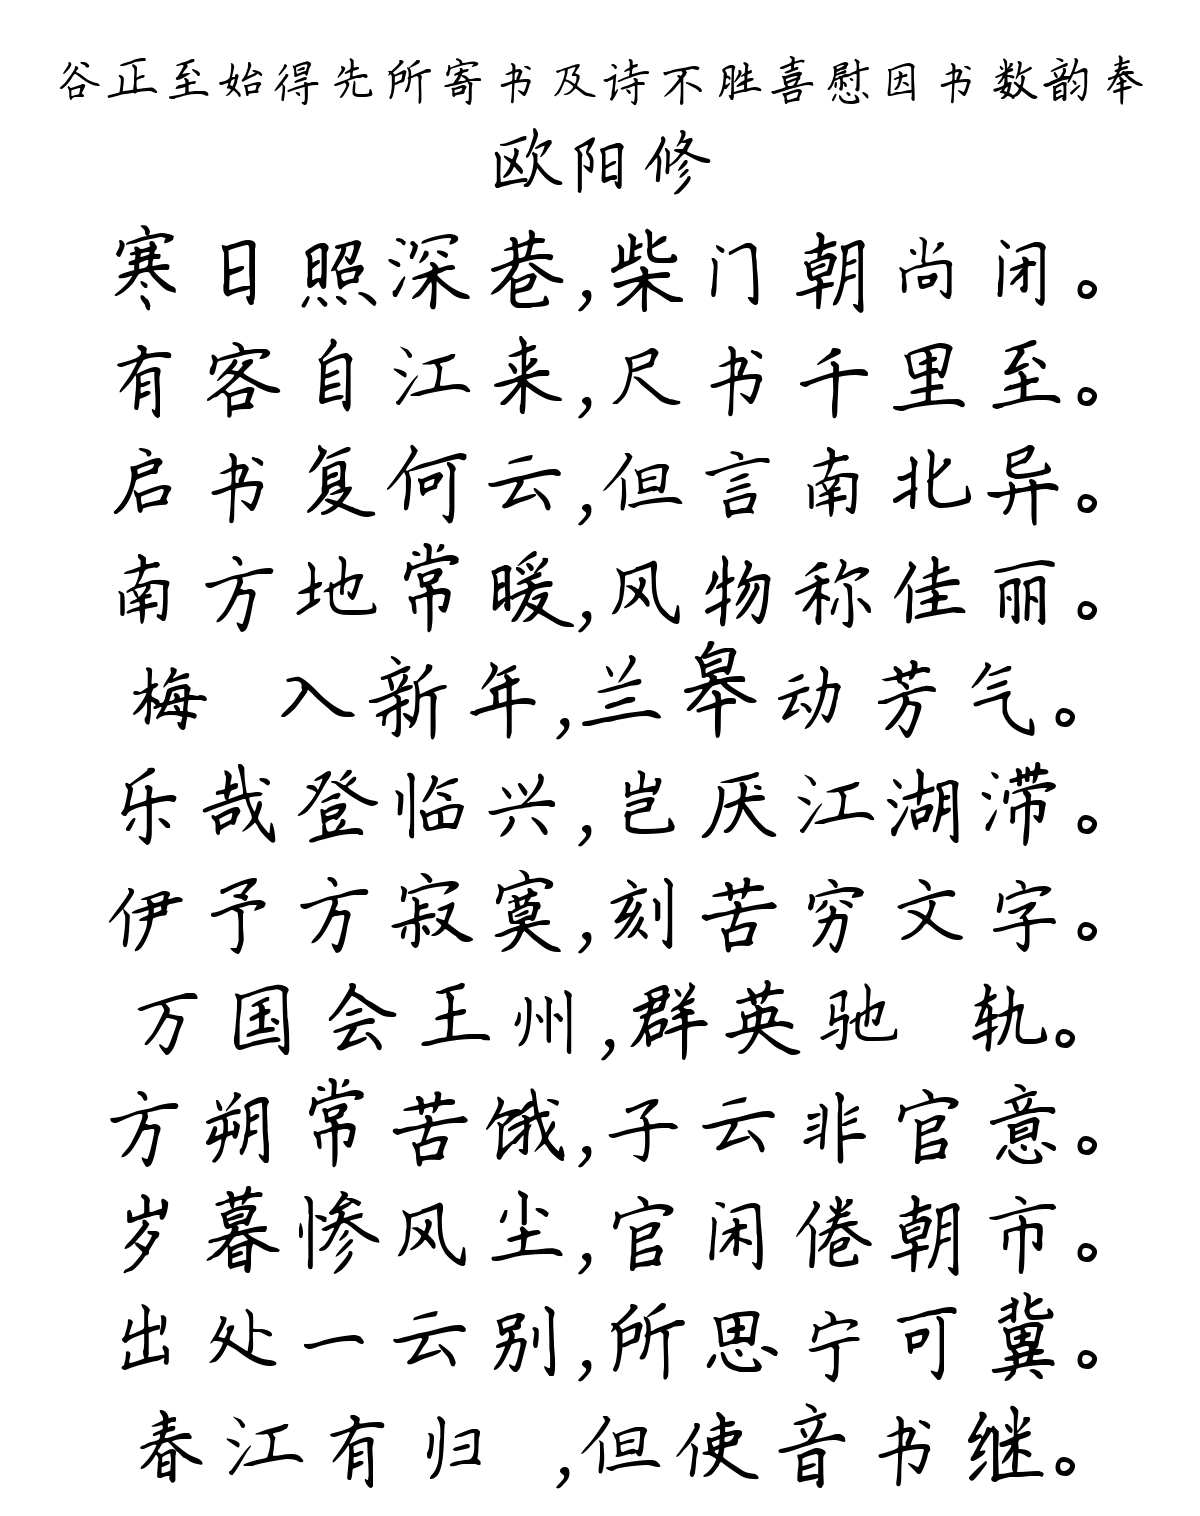 谷正至始得先所寄书及诗不胜喜慰因书数韵奉
欧阳修
寒日照深巷,柴门朝尚闭。
有客自江来,尺书千里至。
启书复何云,但言南北异。
南方地常暖,风物称佳丽。
梅 入新年,兰皋动芳气。
乐哉登临兴,岂厌江湖滞。
伊予方寂寞,刻苦穷文字。
万国会王州,群英驰 轨。
方朔常苦饿,子云非官意。
岁暮惨风尘,官闲倦朝市。
出处一云别,所思宁可冀。
春江有归 ,但使音书继。